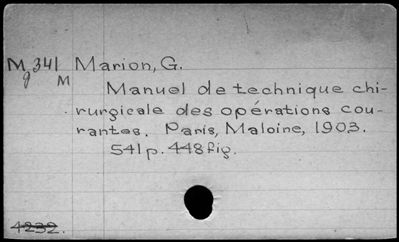 Mg341 Marion, G.
M
Manuel de technique chi-
rurgicale des opérations cou-
rantes. Paris, Maloine, 1903.
541p. 448fig.
4232.